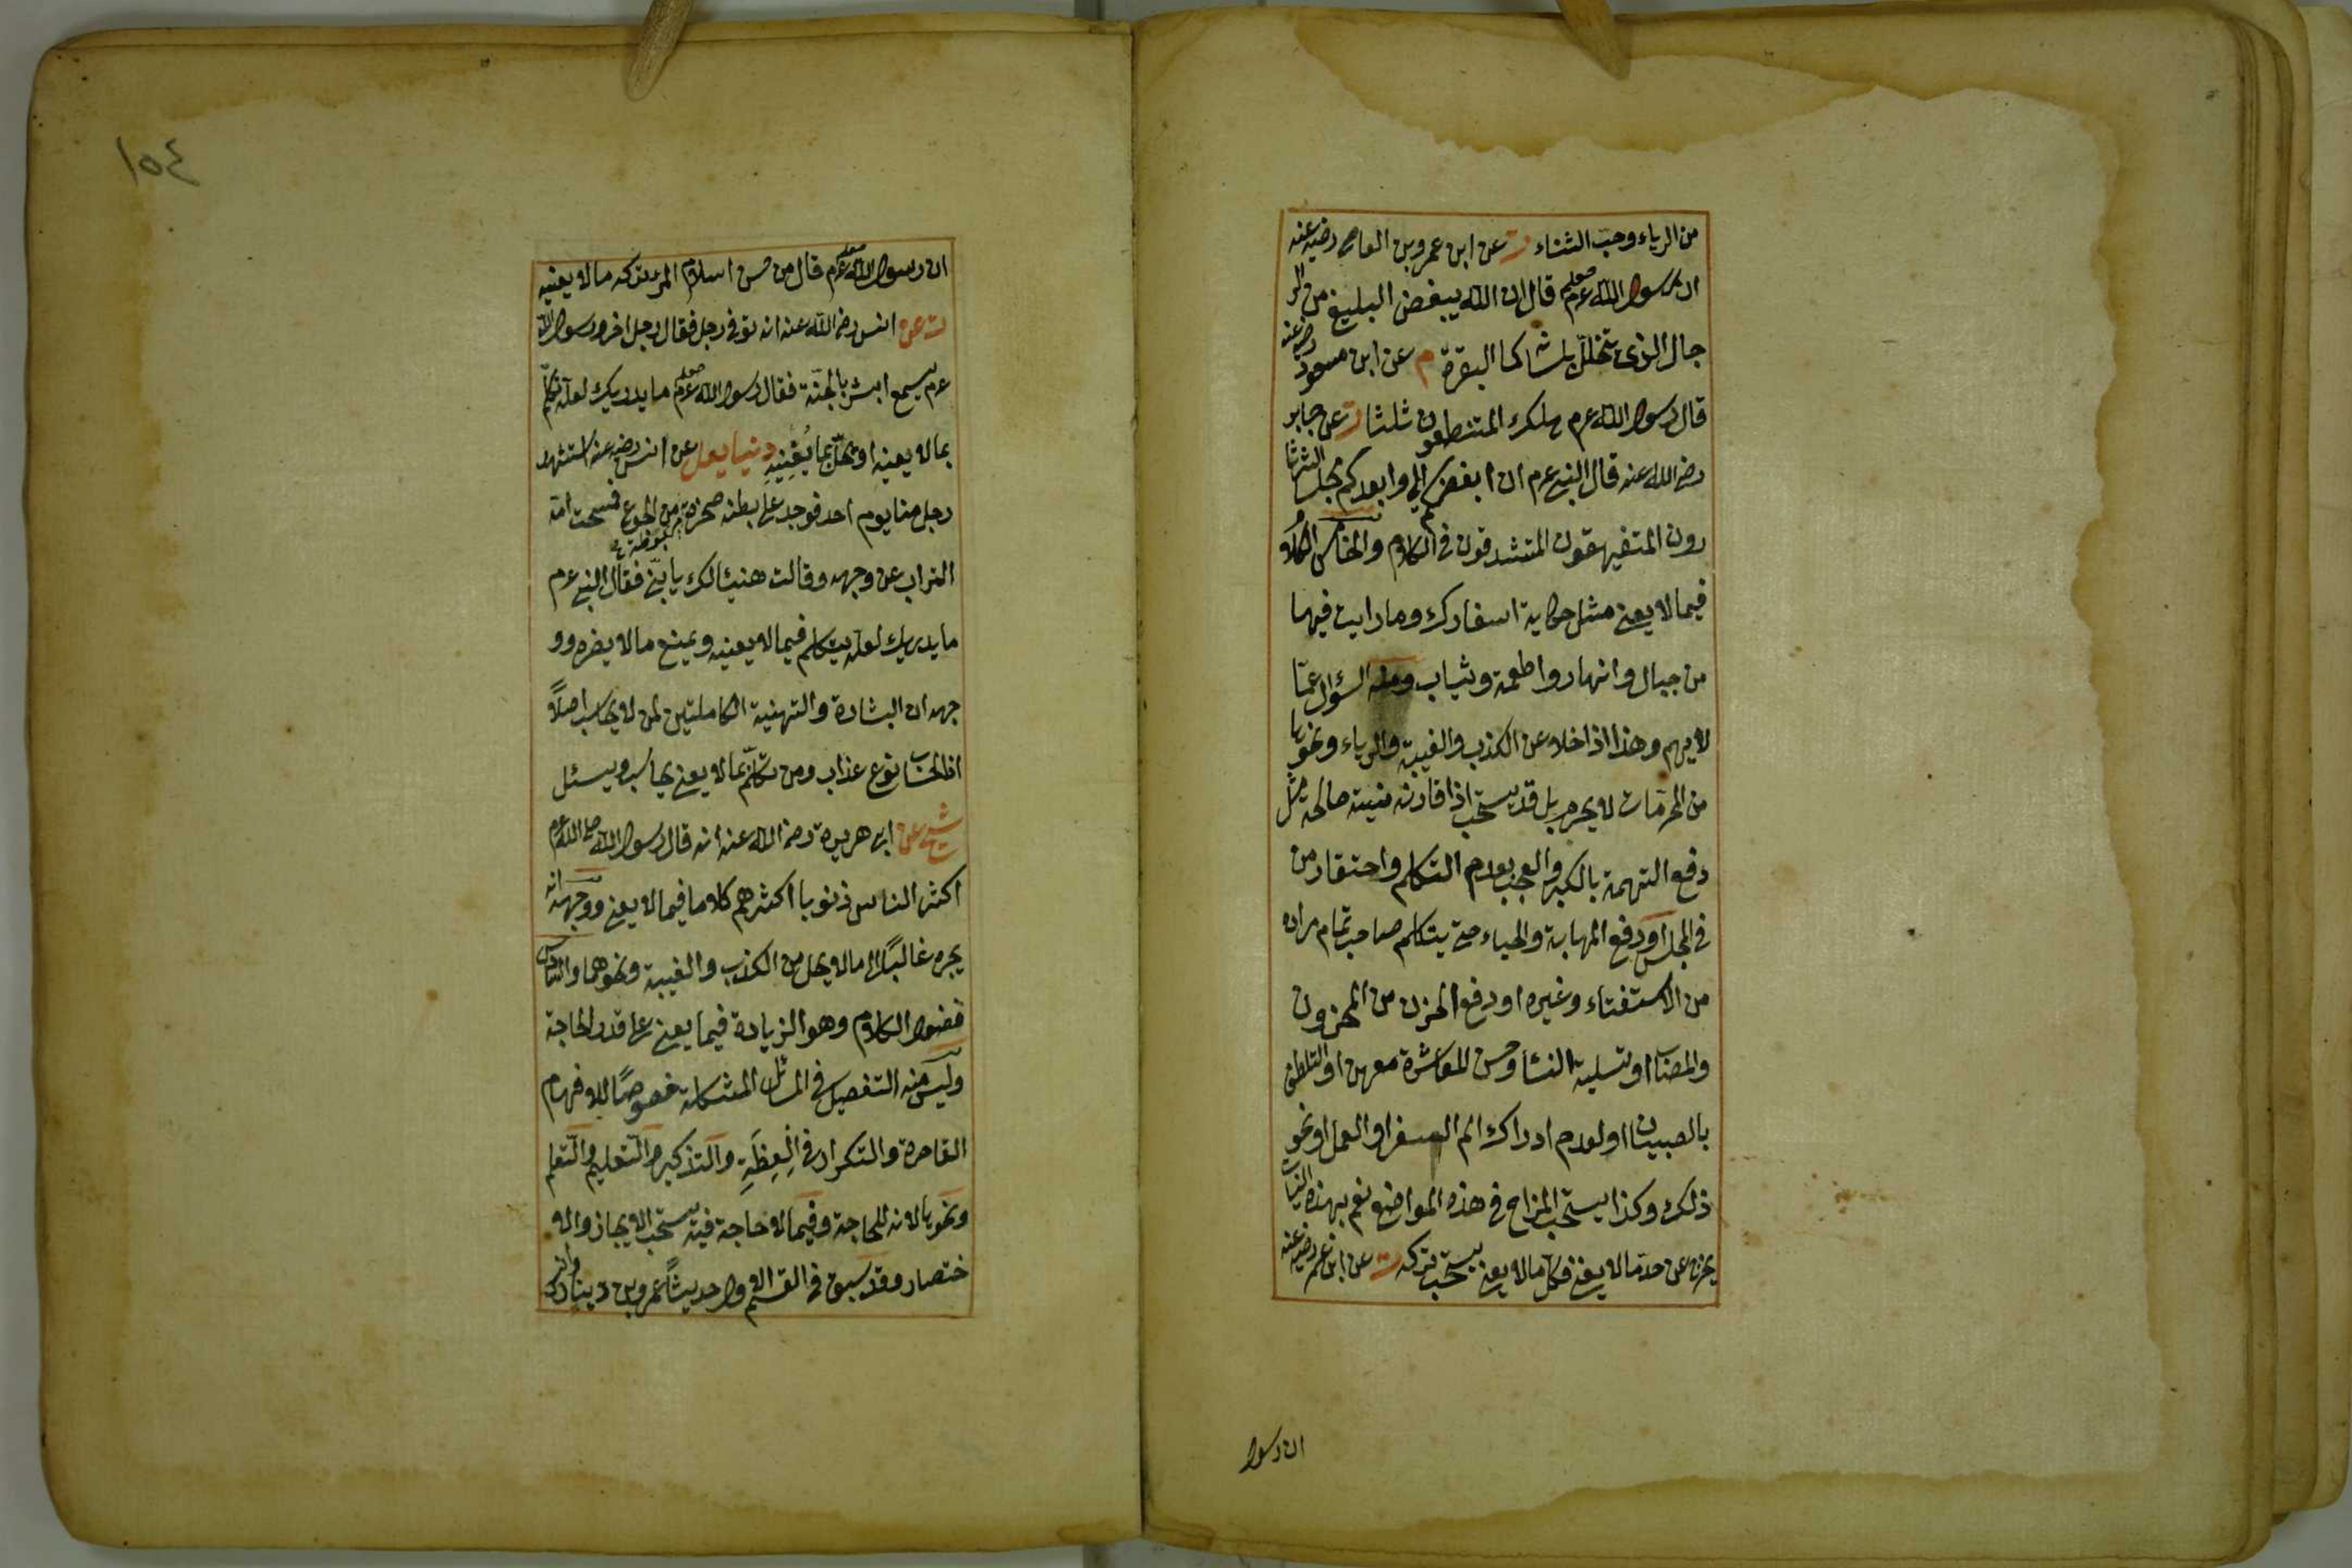 من الرياء وحب الثناء ت عن ابن عمرو بن العاص رضيه عنه
ان رسول الله صلعم عرم قال ان الله يبغض البليغ من الر
جال الذى يتخلل بلسانه كما البقرة م عن ابن مسعود رضيه عنه
قال رسول الله عرم هلك المتنطعون ثلثا ت عن جابر
رضى الله عنه قال النبى عرم ان ابغضكم الى وابعدكم مجلسا الثرثا
رون المتفيهقون المتشدقون فى الكلام والخامس الكلام
فيما لا يعنى مثل حكاية اسفارك وما رايت فيها
من جبال وانهار واطعمة وثياب ومنه السؤال عمّا
لا يهم وهذا اذا خلا عن الكذب والغيبة والرياء ونحوها
من المحرّمات لا يحرم بل قد يستحب اذا قارنته نية صالحة مثل
دفع التهمة بالكبر والعجب بعدم التكلم واحتقار من
فى المجلس او دفع المهابة والحياء حتى يتكلم صاحب تمام مراده
من الاستفتاء وغيره او دفع الحزن من المحزون
والمصاب او تسلية النساء وحسن المعاشرة معهن او التلطف
بالصبيان او لعدم ادراك الم السفر او العمل او نحو
ذلك وكذا يستحب المزاح فى هذه المواضع نعم بهذه النيات
يخرج عن حدّ مالا يعنى فكل مالا يعنى يستحب تركه ت عن ابن عمر رضيه عنه
ان رسول
١٥٤
ان رسول الله صلعم عرم قال من حسن اسلام المرء تركه مالا يعنيه
ت عن انس رضى الله عنه انه توفى رجل فقال رجل اخر ورسول الله
عرم يسمع ابشر بالجنّة فقال رسول الله صلعم عرم ما يدريك لعله تكلّم
بما لا يعنيه او بخل بما يُغنِيهِ دنيا يعلى عن انس رضيه عنه استشهد
رجل منا يوم احد فوجد على بطنه صخرة مربوطة من الجوع فمسحت امّه
التراب عن وجهه وقالت هنيئا لك يا بنىّ فقال النبى عرم
ما يدريك لعله يتكلم فيما لا يعنيه ويمنع مالا يضره وو
جهه ان البشارة والتهنية الكاملتين لمن لا يحاسب اصلاً
اذ الحساب نوع عذاب ومن تكلّم بما لا يعنى يحاسب ويسئل
شيخ عن ابى هريرة رضى الله عنه انه قال رسول الله صلى الله عرم
اكثر الناس ذنوبا اكثرهم كلاما فيما لا يعنى ووجهه انه
يجره غالبًا الى مالا يحل من الكذب والغيبة ونحوهما والسادس
فضول الكلام وهو الزيادة فيما يعنى على قدر الحاجة
وليس منه التفصيل فى المسائل المشكلة خصوصًا للافهام
القاصرة والتكرار فى الْعِظَةِ والتذكير والتعليم والتعلم
ونحوها لانه للحاجة وفيما لا حاجة فيه يستحب الايجاز والا
ختصار وقد سبق فى القسم الاول حديثًا عمرو بن دينار وانس